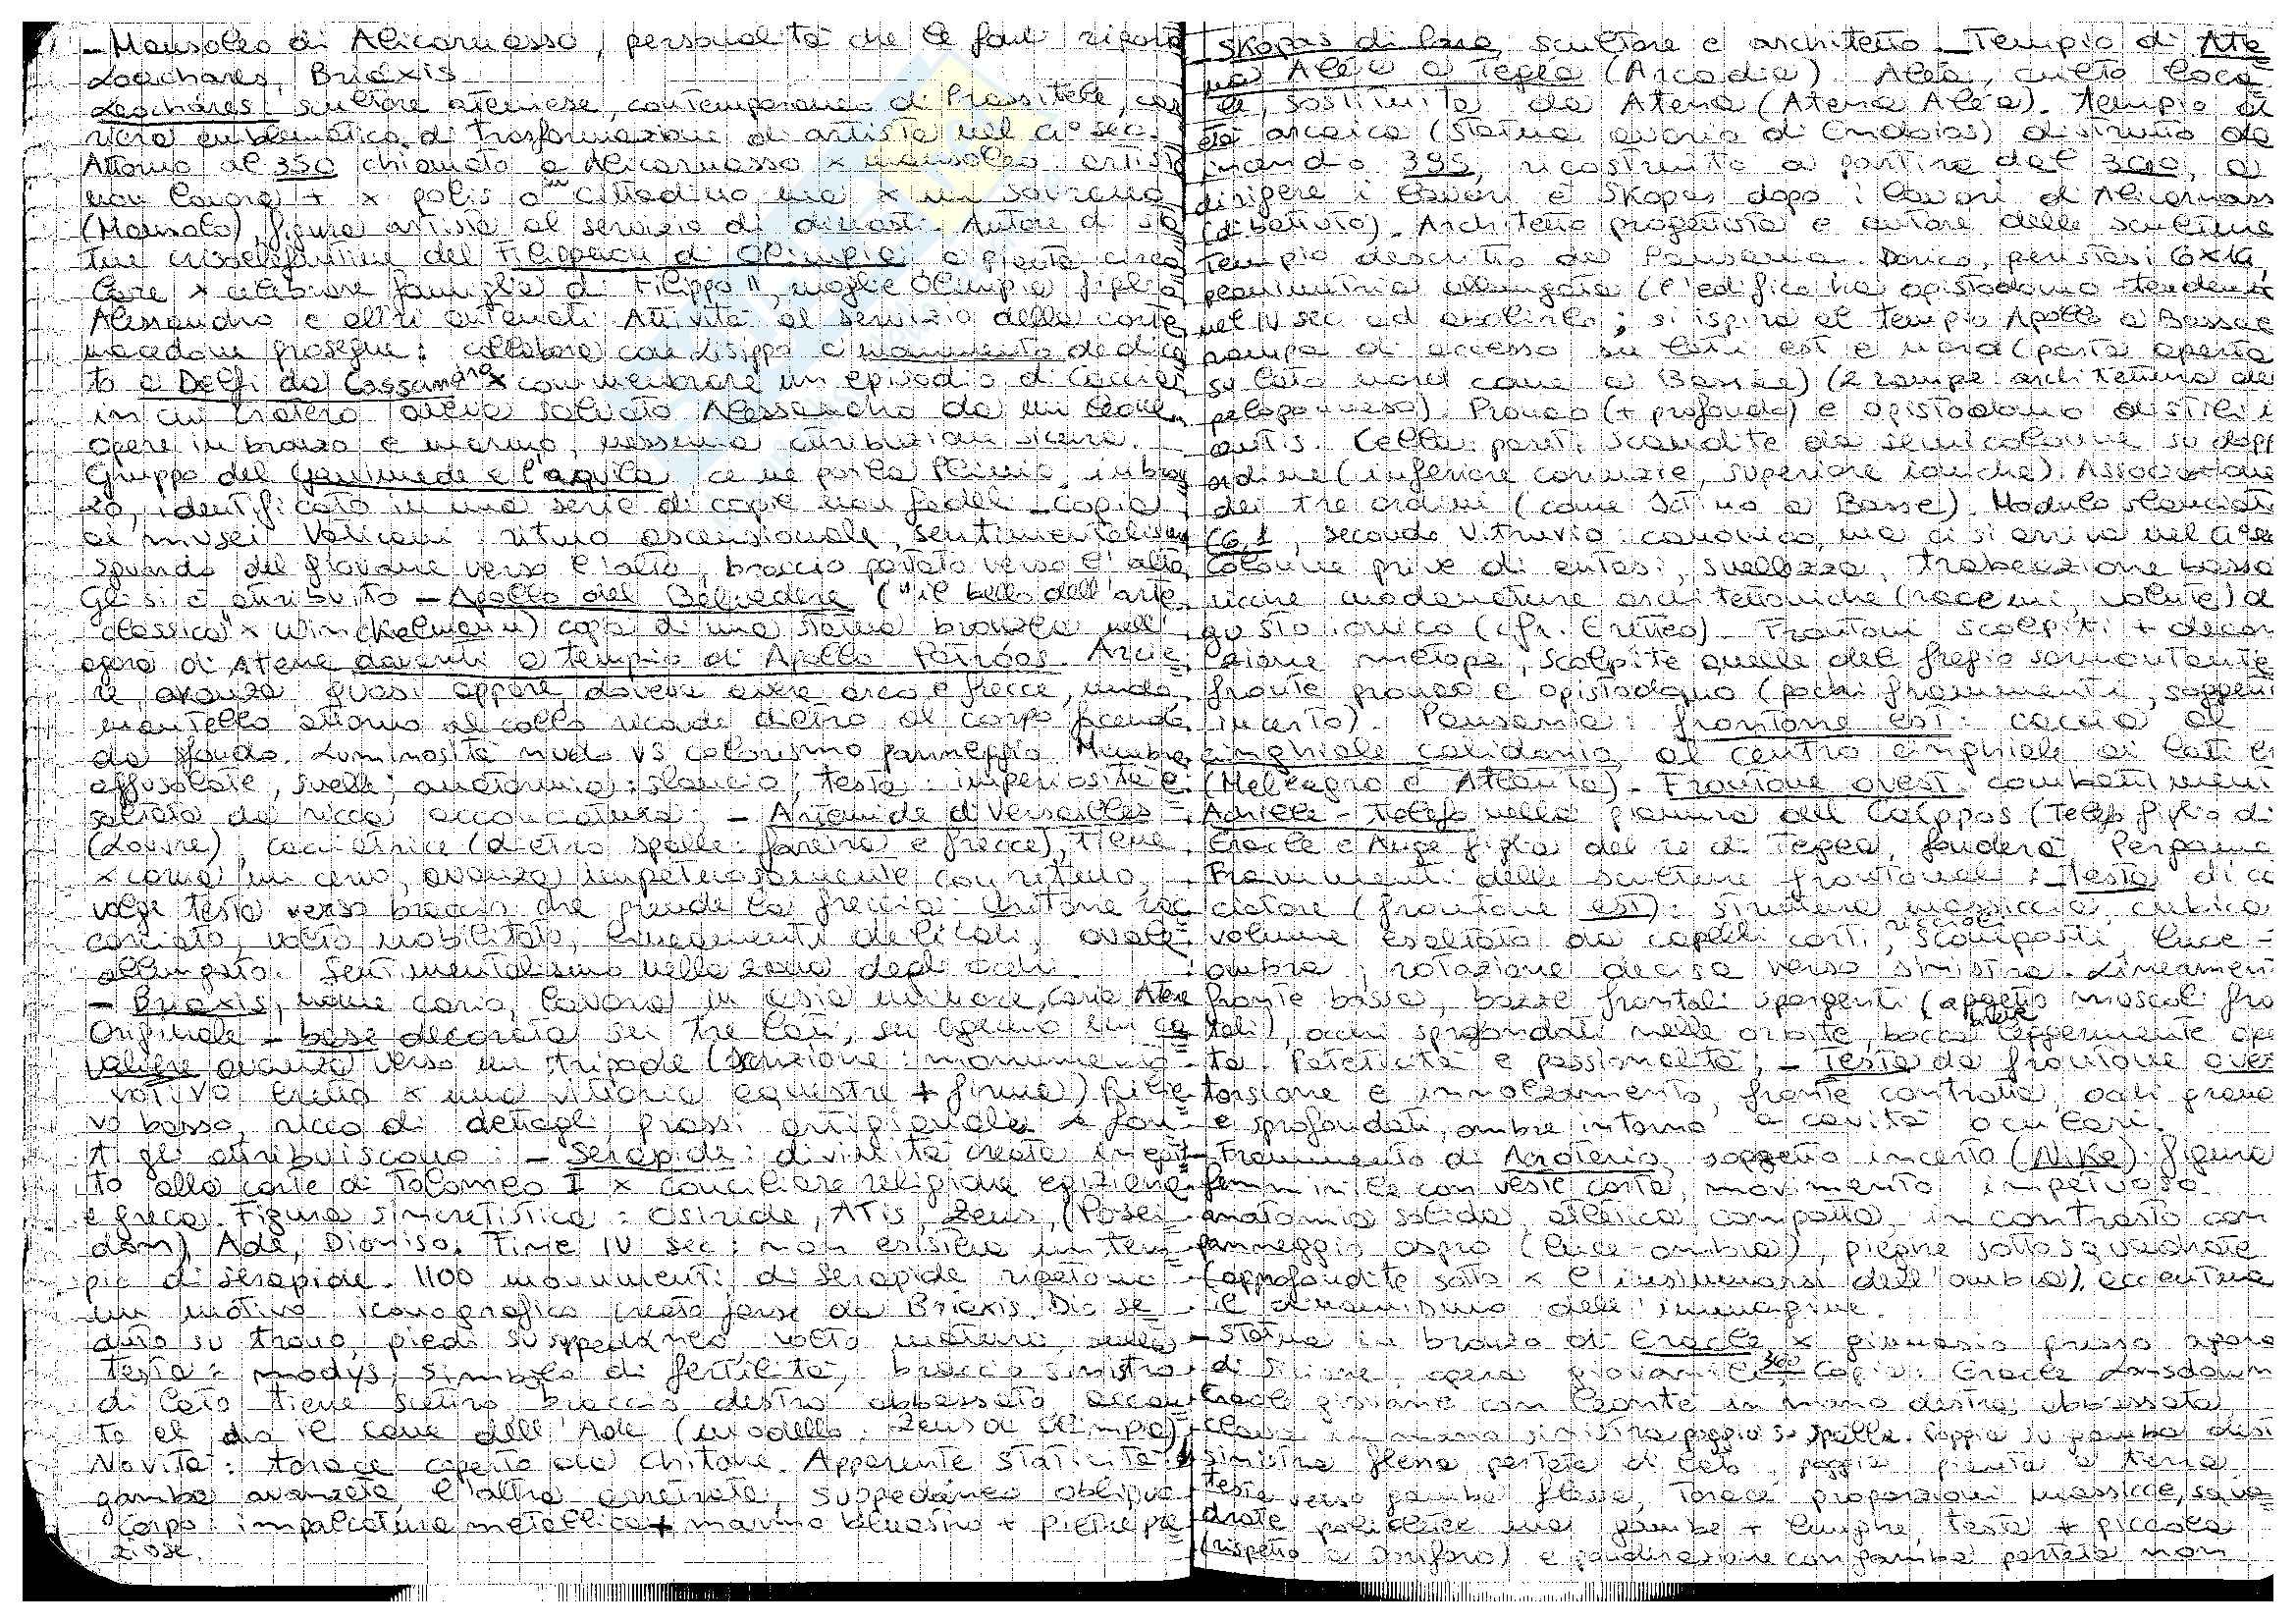 - Mausoleo di Alicarnasso, personalità che le fonti riporta
Leochares, Briaxis
Leochares: scultore ateniese, contemporaneo di Prassitele, car
riera emblematica di trasformazione di artista nel 4° sec.
Attorno al 350 chiamato a Alicarnasso x mausoleo: artista
non lavora + x polis o cittadino ma x un sovrano
(Mausolo), figura artista al servizio di dinasti. Autore di sta
tue crisoelefantine del Filippeion di Olimpia, a pianta circo
lare x celebrare famiglia di Filippo II, moglie Olimpia figlio
Alessandro e altri antenati. Attività al servizio della corte
macedone prosegue: collabora con Lisippo a monumento dedica
to a Delfi da Cassandro x commemorare un episodio di caccia
in cui Cratero aveva salvato Alessandro da un leone
opere in bronzo e marmo, nessuna attribuzione sicura.
Gruppo del Ganimede e l'aquila ce ne parla Plinio, in bron
zo, identificato in una serie di copie non fedeli - copia
ai musei Vaticani ritmo ascensionale, sentimentalismo
sguardo del giovane verso l'alto, braccio portato verso l'alto
Gli si è attribuito - Apollo del Belvedere ("il bello dell'arte
classica" x Winckelmann) copia di una statua bronzea nell'
agorà di Atene davanti a tempio di Apollo Patròos. Arcie
re avanza quasi appare, doveva avere arco e frecce, nudo
mantello attorno al collo ricade dietro al corpo facendo
da sfondo. Luminosità nudo vs colorismo panneggio. Membra
affusolate, snelle; anatomia: slancio; testa: imperiosità e
saltata da ricca acconciatura; - Artemide di Versailles
(Louvre), cacciatrice (dietro spalle: faretra e frecce), tiene
x corna un cervo, avanza impetuosamente con ritmo,
volge testa verso braccio che prende la freccia. Chitone rac
corciato, volto mobilitato, lineamenti delicati, ovale
allungato. Sentimentalismo nella zona degli occhi.
- Briaxis, nome cario, lavora in Asia minore, Caria Atene
Originale - base decorata su tre lati, su ognuno un ca
valiere avanza verso un tripode (iscrizione: monumento
votivo eretto x una vittoria equestre + firma) rilie
vo basso, ricco di dettagli, prassi artigianale x fon
ti gli attribuiscono: - Serapide: divinità creata in egit
to alla corte di Tolomeo I x conciliare religione egiziana
e greca. Figura sincretistica: Osiride, Atis, Zeus, (Posei
don), Ade, Dioniso. Fine IV sec: non esisteva un tem
pio di Serapide. 1100 monumenti di Serapide ripetono
un motivo iconografico creato forse da Briaxis. Dio se
duto su trono, piedi su suppedaneo, volto maturo, sulla
testa: modys, simbolo di fertilità, braccio sinistro
di lato tiene scettro, braccio destro abbassato, accan
to al dio il cane dell'Ade (modello: Zeus di Olimpia)
Novità: torace coperto da chitone. Apparente staticità
gamba avanzata, l'altra arretrata, suppedaneo obliquo
Corpo: impalcatura metallica + marmo bluastro + pietre pre
ziose.
Skopas di Paro, scultore e architetto - Tempio di Ate
na Aléa a Tegea (Arcadia). Aléa, culto loca
le, sostituita da Atena (Atena Aléa). Tempio di
età arcaica (statua avorio di Endoios) distrutto da
incendio 395, ricostruito a partire dal 340, a
dirigere i lavori è Skopas dopo i lavori di Alicarnass
(dibattuto). Architetto progettista e autore delle sculture
Tempio descritto da Pausania. Dorico, peristasi 6x14,
planimetria allungata (l'edificio ha opistodomo tendenza
nel IV sec ad abolirlo; si ispira al tempio Apollo a Bassae
rampa di accesso su lati est e nord (porta aperta
su lato nord come a Bassae) (2 rampe: architettura del
peloponneso). Pronao (+ profondo) e opistodomo distili i
antis. Cella: pareti scandite da semicolonne su dopp
ordine (inferiore corinzie, superiore ioniche). Associazione
dei tre ordini (come Ictino a Basse). Modulo slanciato
(6,1, secondo Vitruvio: canonico, ma ci si arriva nel 4° se
colonne prive di entasi, snellezza, trabeazione bassa
ricche modanature architettoniche (racemi, volute) di
gusto ionico (cfr. Eretteo). Frontoni scolpiti + decor
azione metope, scolpite quelle del fregio sormontante
fronte pronao e opistodomo (pochi frammenti, soggetti
incerto). Pausania: frontone est: caccia al
cinghiale calidonio, al centro cinghiale ai lati er
(Meleagro e Atlanta). - Frontone ovest: combattimenti
Achille - Telefo nella pianura del Caìppos (Telefo figlio di
Eracle e Auge figlia del re di Tegea, fonderà Pergamo
Frammenti delle sculture frontonali: - testa di ca
ciatore (frontone est): struttura massiccia, cubica
volume esaltato da capelli corti, riccioli scomposti, luce-
ombra, rotazione decisa verso sinistra. Lineamen
fronte bassa, bozze frontali sporgenti (aggetto muscoli fro
tali), occhi sprofondati nelle orbite, bocca breve leggermente ape
ta. Pateticità e passionalità; - Testa da frontone oves
torsione e innalzamento, fronte contratta, occhi grand
e sprofondati, ombre intorno a cavità oculari.
- Frammento di Acroterio, soggetto incerto (Nike): figura
femminile con veste corta, movimento impetuoso
anatomia solida, atletica compatta in contrasto con
panneggio aspro (luce-ombra), pieghe sottosquadrate
(approfondite sotto x l'insinuarsi dell'ombra), accentua
il dinamismo dell'immagine.
- Statua in bronzo di Eracle x ginnasio presso agorà
di Sicione, opera giovanile 360 Copia: Eracle Lansdown
Eracle giovane con leonté in mano destra abbassata
clava in mano sinistra poggia su spalla. Poggia su gamba dest
sinistra flessa portata di lato, poggia pianta a terra
testa verso gamba flessa, Torace proporzioni massicce, squa
drate policletee ma gambe + lunghe, testa + piccola
(rispetto a Doriforo) e ponderazione con gamba portata non